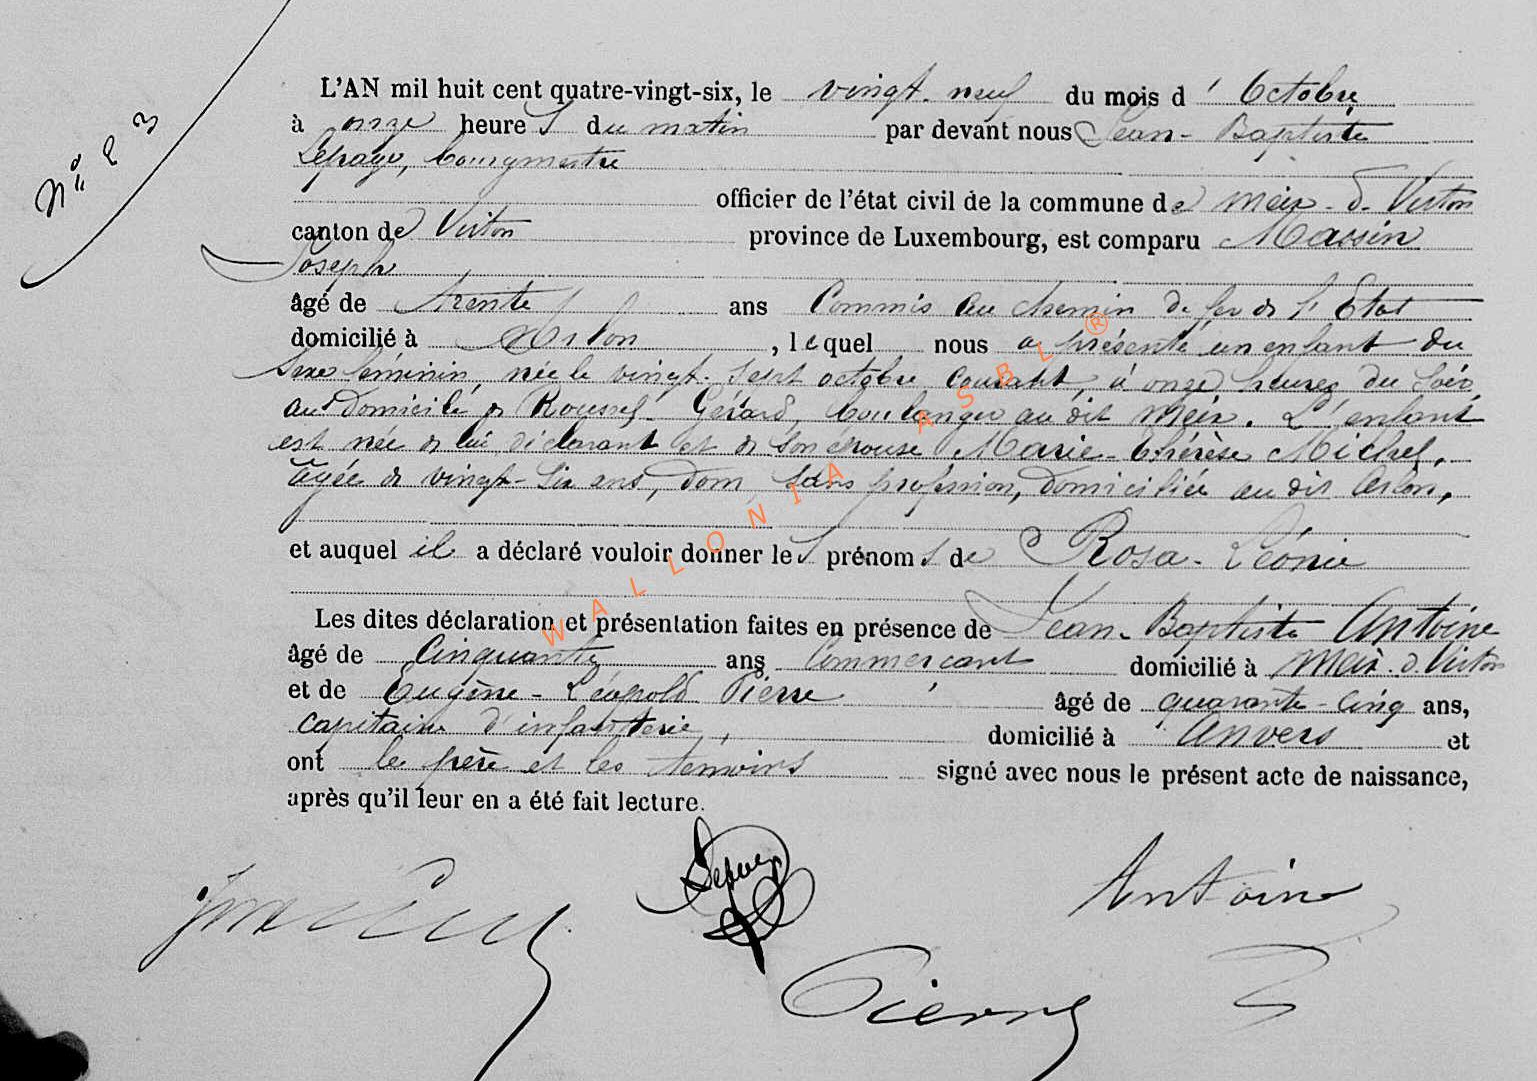 N° 23
L'AN mil huit cent quatre-vingt-six, le vingt-neuf du mois d'Octobre
à onze heures du matin par devant nous Jean-Baptiste
Lepage, bourgmestre
officier de l'état civil de la commune de Meix-d-Virton
canton de Virton province de Luxembourg, est comparu Massin
Joseph
âgé de trente ans Commis au chemin de fer de l'Etat
domicilié à Arlon, lequel nous a présenté un enfant du
sexe féminin, née le vingt-sept octobre courant, à onze heures du soir
au domicile de Roussel Gérard, boulanger au dit Meix. L'enfant
est née de lui déclarant et de son épouse Marie-Thérèse Michel,
âgée de vingt-six ans, sans profession, domiciliée au dit Arlon,
et auquel il a déclaré vouloir donner les prénoms de Rosa-Léonie
Les dites déclaration et présentation faites en présence de Jean-Baptiste Antoine
âgé de Cinquante ans Commerçant domicilié à Meix-d-Virton
et de Eugène-Léopold Pierre âgé de quarante-cinq ans,
capitaine d'infanterie, domicilié à Anvers et
ont le père et les témoins signé avec nous le présent acte de naissance,
après qu'il leur en a été fait lecture.
Lepage
Antoine
Pierre
WALLONIA ASBL ®